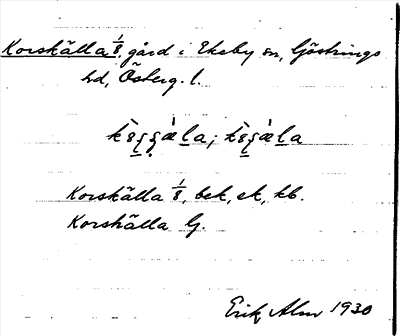 Korskälla 1/8, gård i Ekeby sn, Göstrings
hd, Österg. l.
Korskälla 1/8, bek, ek, kb.
Korskälla G.
Erik Alm 1930